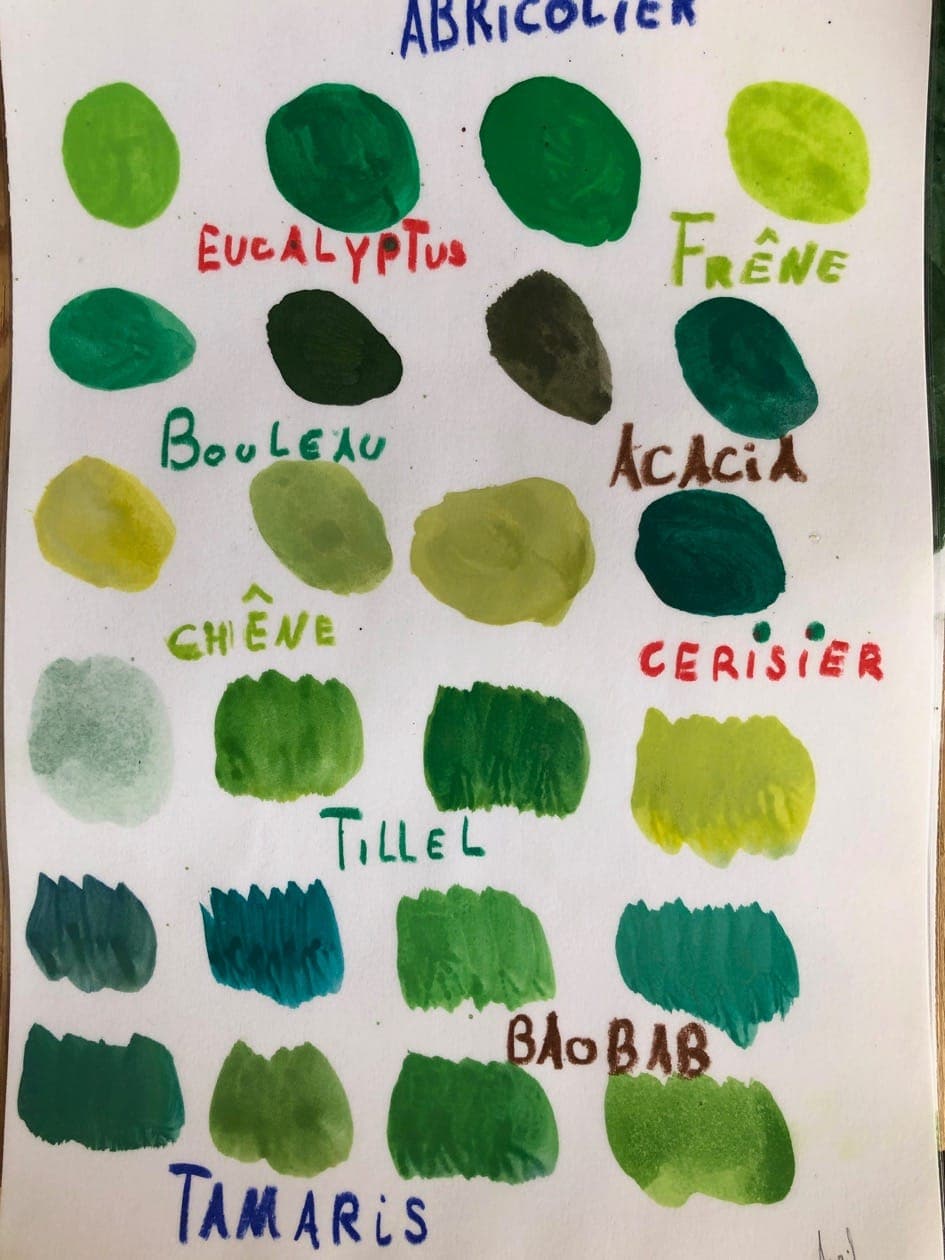 ABRICOLIER
EUCALYPTUS
FRÊNE
BOULEAU
ACACiA
CHÊNE
CERISIER
TILLEL
BAOBAB
TAMARiS